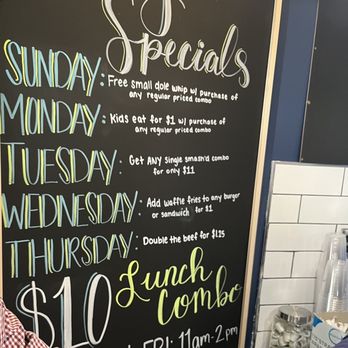 Specials
SUNDAY: Free small dole whip w/ purchase of
any regular priced combo
MONDAY: Kids eat for $1 w/ purchase of
any regular priced combo
TUESDAY: Get ANY Single smash'd combo
for only $11
WEDNESDAY: Add waffle fries to any burger
or sandwich for $1
THURSDAY: Double the beef for $1.25
$10 Lunch
Combo
FRI: 11am-2pm